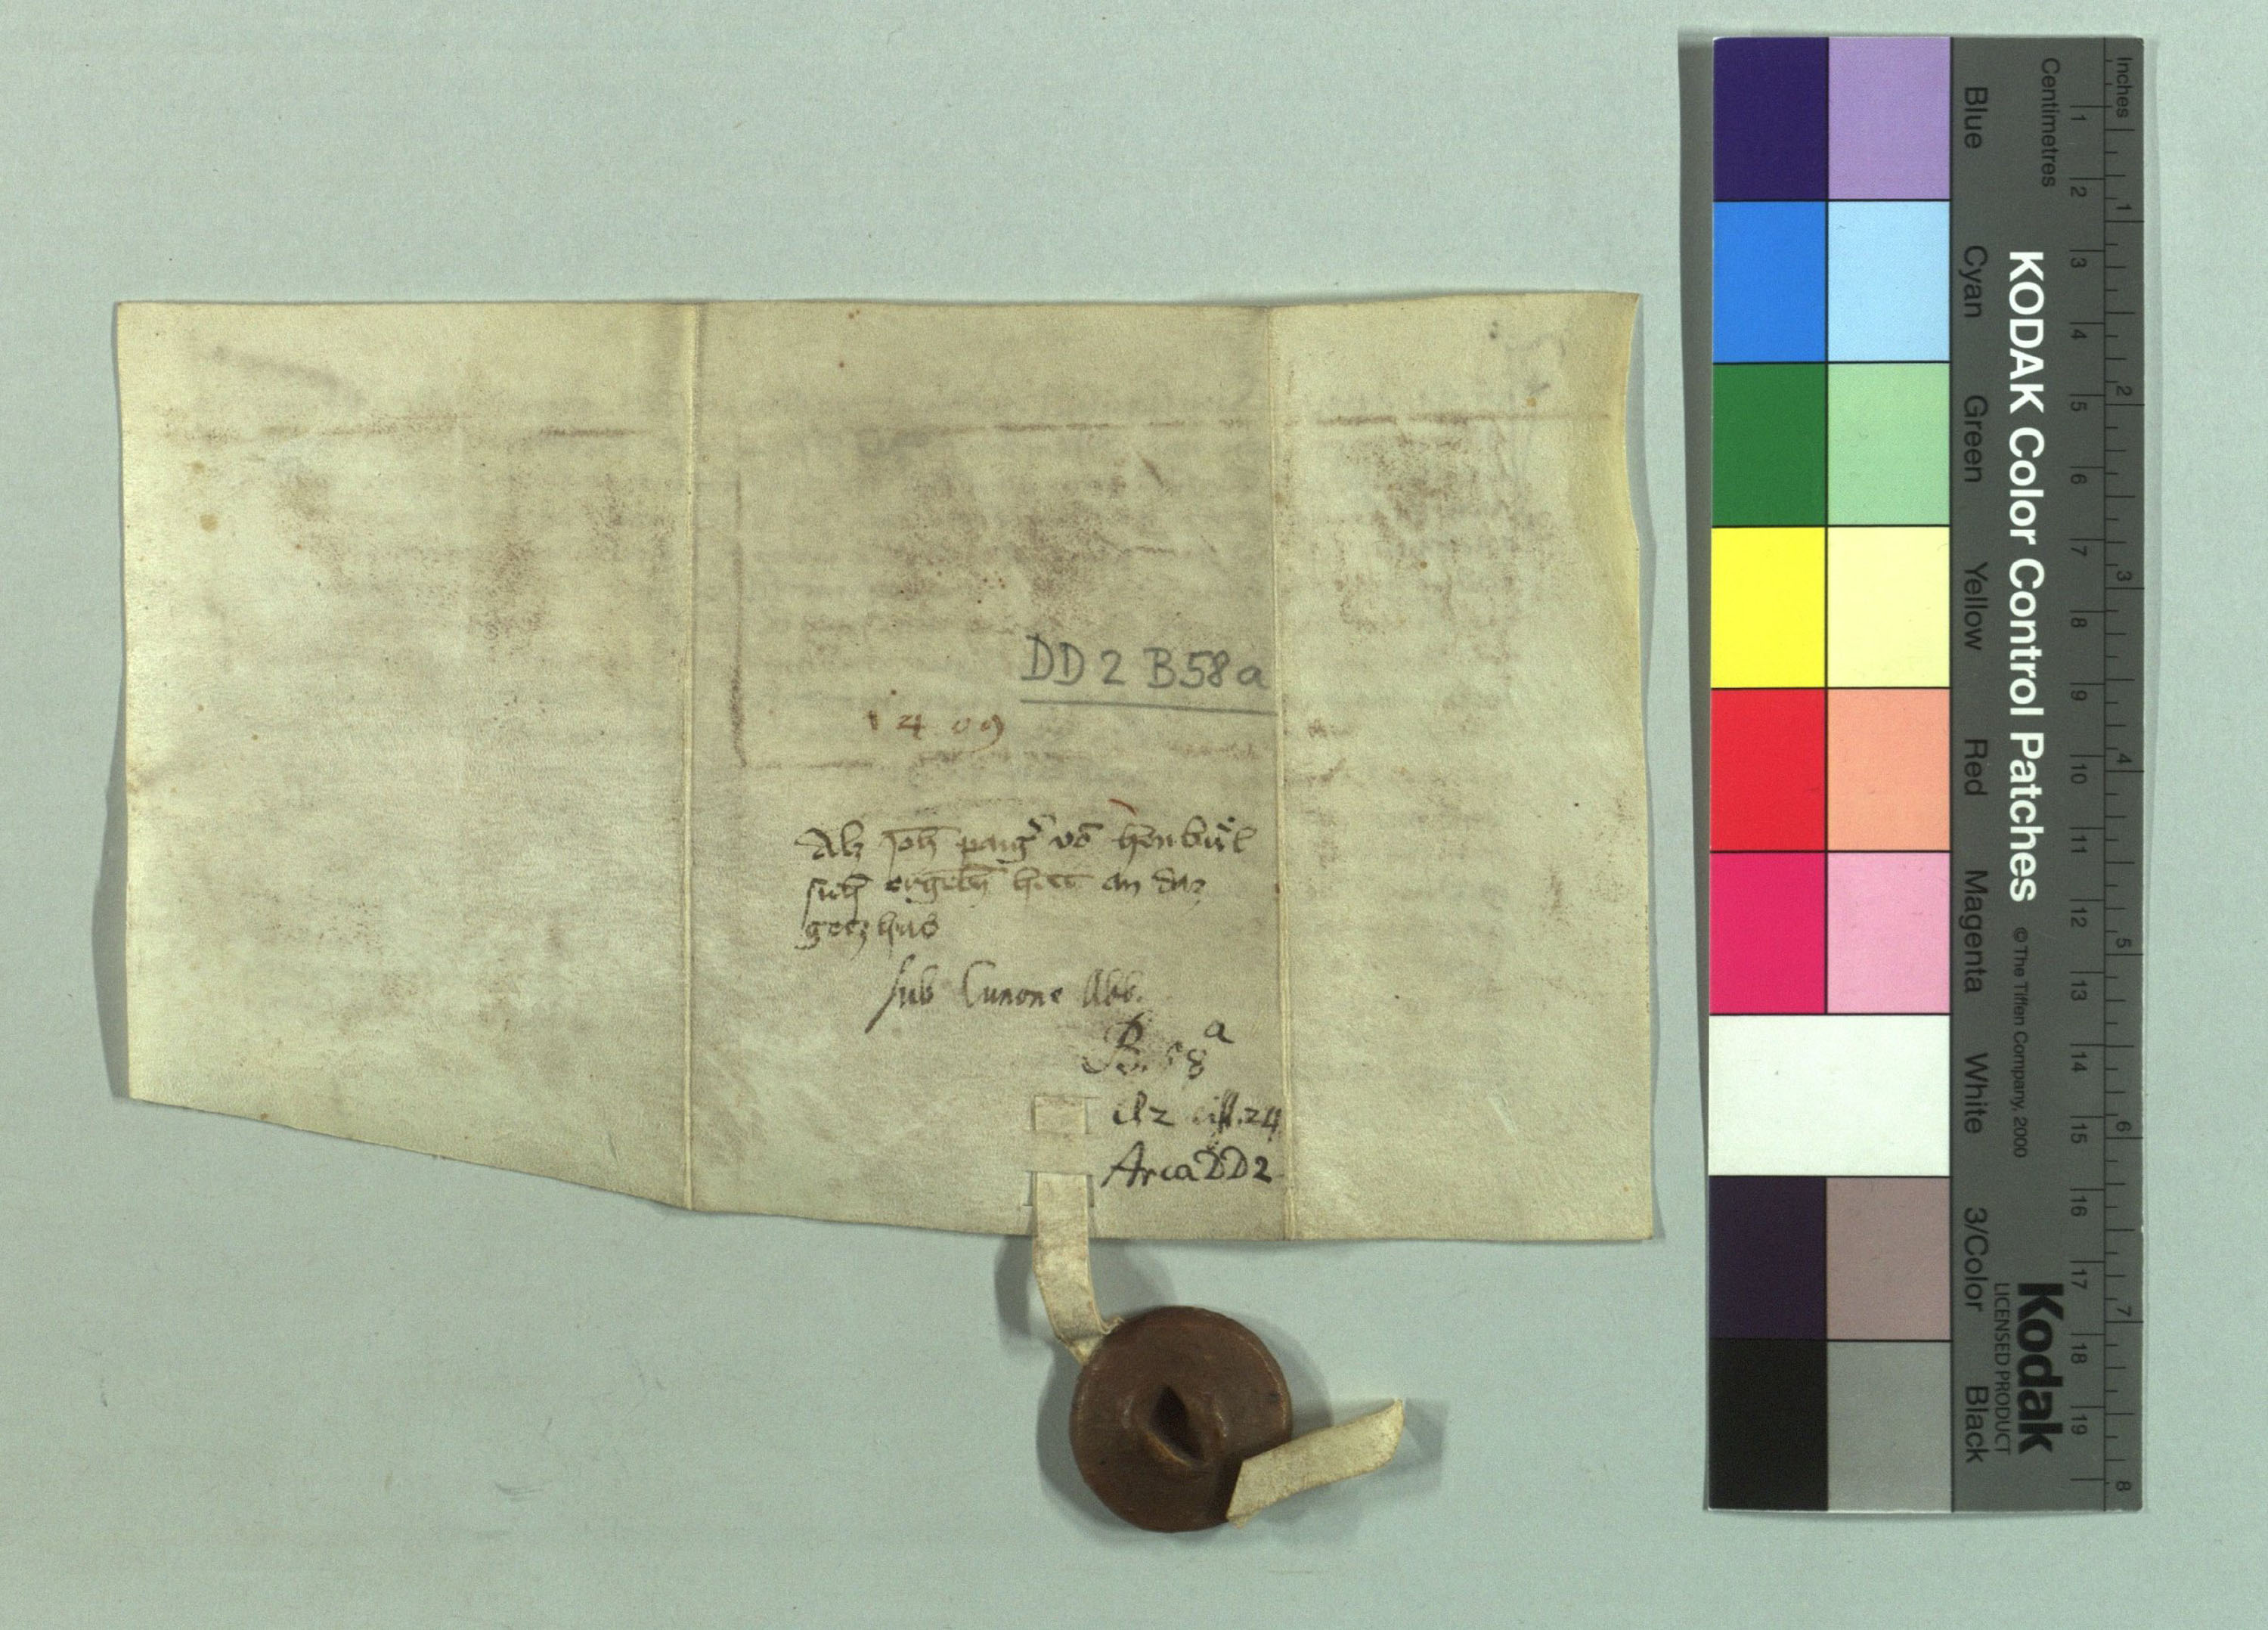 DD 2 B58a
1409
Alz joh paig vō henbüͤl
sich ergebn hett an daz
gotzhus
sub Cunone Abb.
B. 58 a
A2 cist. 24
Arca DD2
Inches
Centimetres
Blue
Cyan
Green
Yellow
Red
Magenta
White
3/Color
Black
KODAK Color Control Patches
© The Tiffen Company, 2000
Kodak
LICENSED PRODUCT
1 2 3 4 5 6 7 8 9 10 11 12 13 14 15 16 17 18 19
1 2 3 4 5 6 7 8